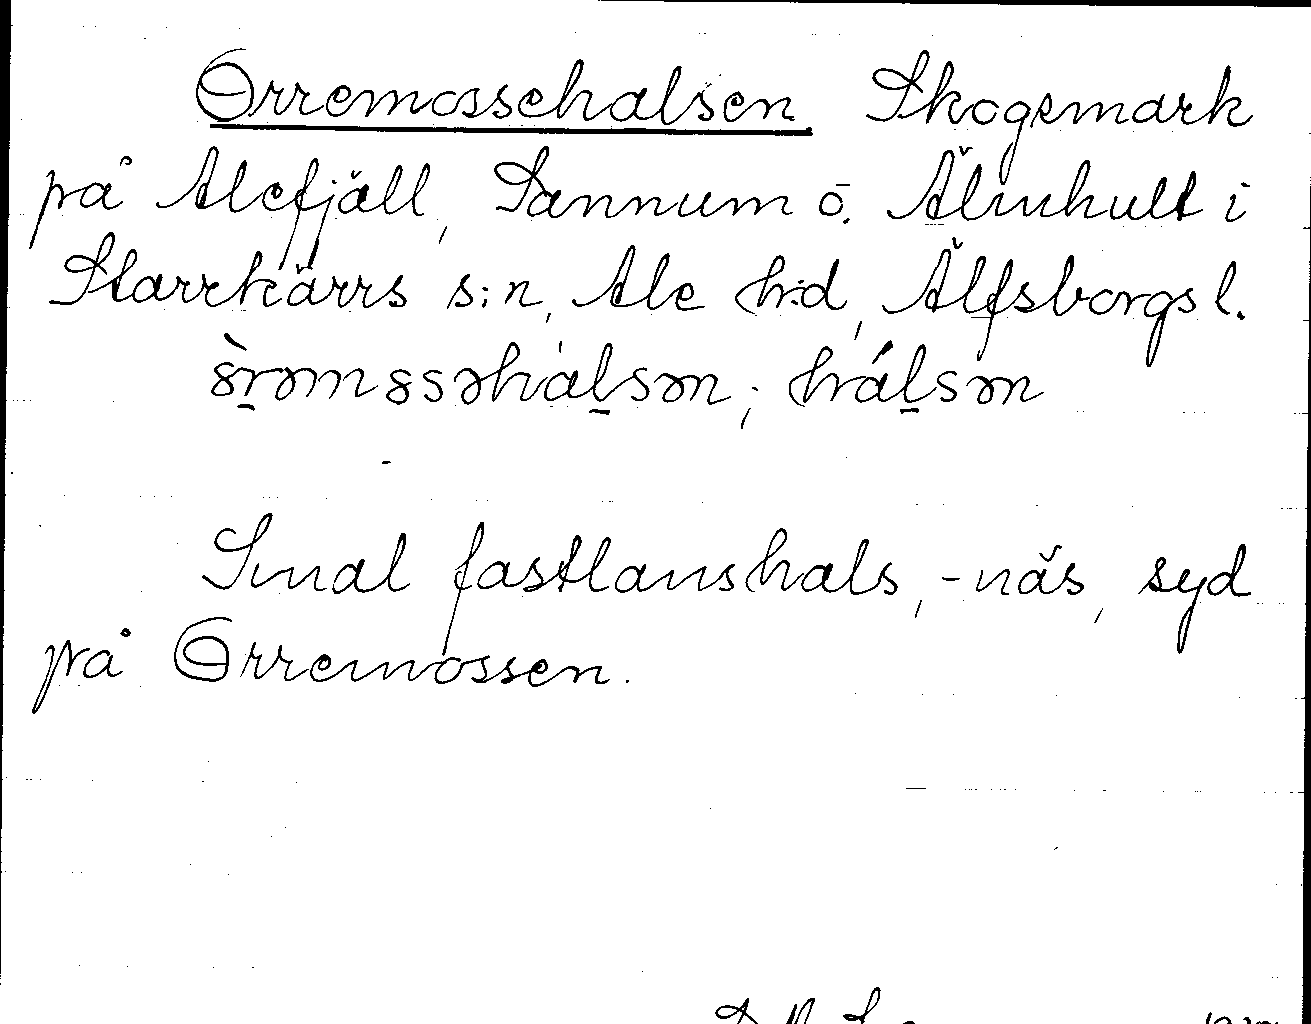 Orremossehalsen. Skogsmark
på Alefjäll, Sannum o. Älmhult i
Starrkärrs s:n, Ale h:d, Älfsborgs l.
òrəmossəhalsən; hálsən
Smal fastlanshals, -näs, syd
på Orremossen.